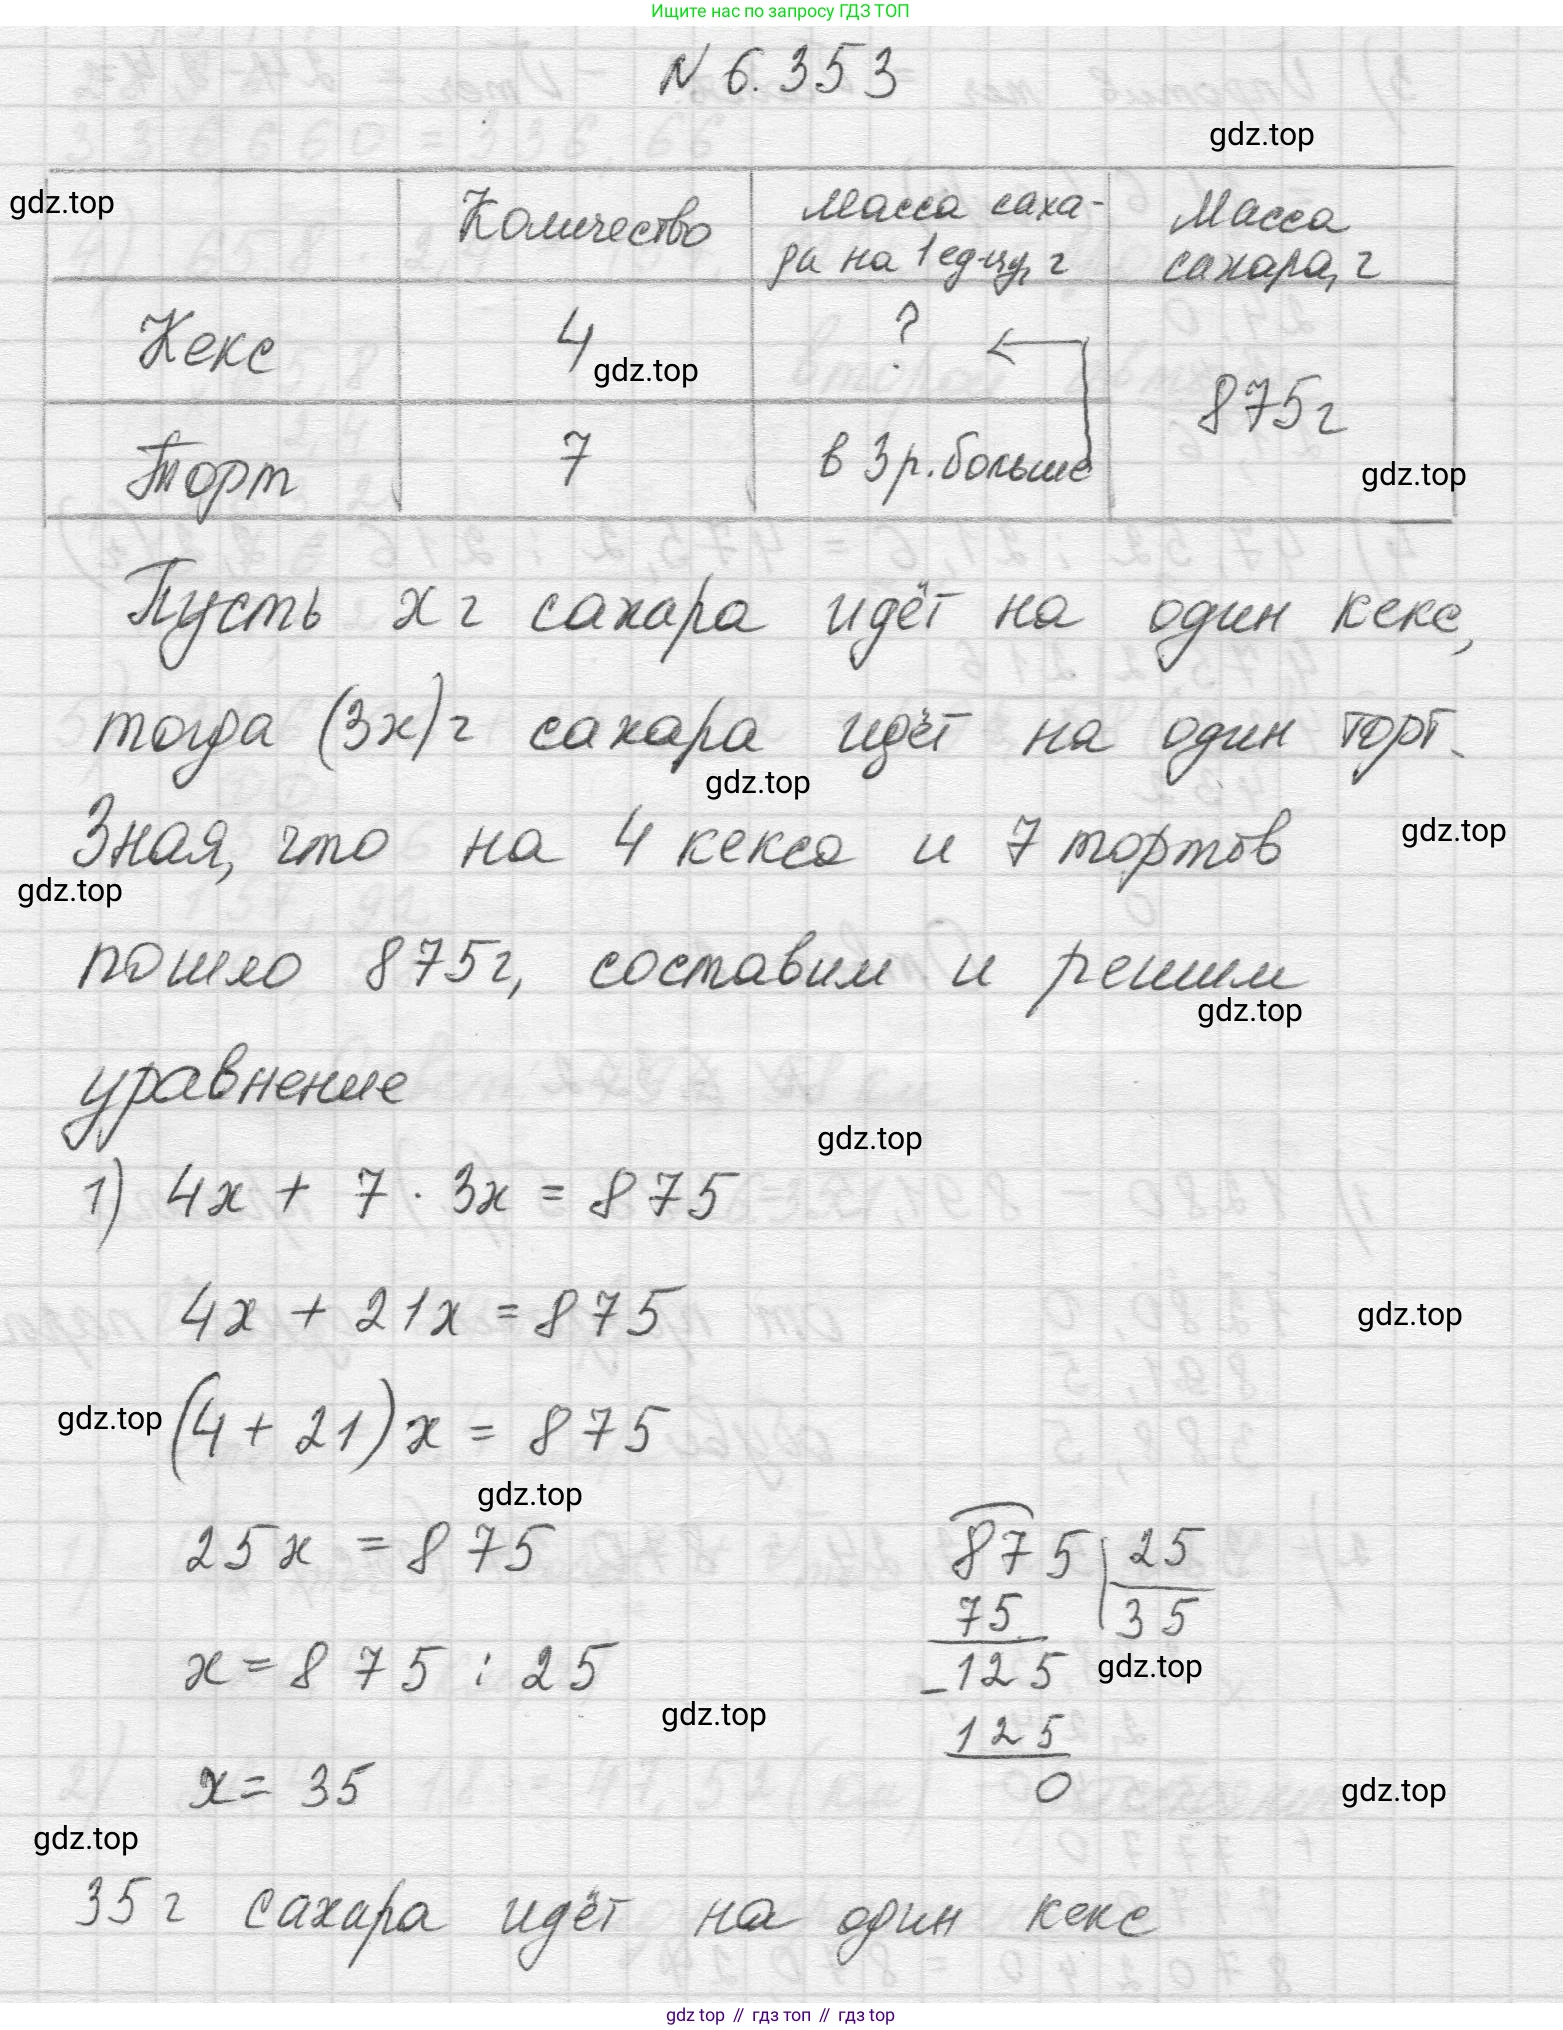 Ищите нас по запросу ГДЗ ТОП
№ 6.353
gdz.top
gdz.top
Количество
Масса саха-
ра на 1 ед-цу, г
Масса
сахара, г
Кекс
4
?
gdz.top
875г
Торт
7
в 3 р. больше
gdz.top
Пусть x г сахара идёт на один кекс,
тогда (3x) г сахара идёт на один торт.
gdz.top
Зная, что на 4 кекса и 7 тортов
gdz.top
gdz.top
пошло 875г, составим и решим
gdz.top
уравнение
gdz.top
1) 4x + 7 · 3x = 875
4x + 21x = 875
gdz.top
gdz.top
(4 + 21) x = 875
gdz.top
25x = 875
875 25
75 35
x = 875 : 25
- 125
gdz.top
gdz.top
125
x = 35
0
gdz.top
gdz.top
35 г сахара идёт на один кекс
gdz.top // гдз топ // гдз top